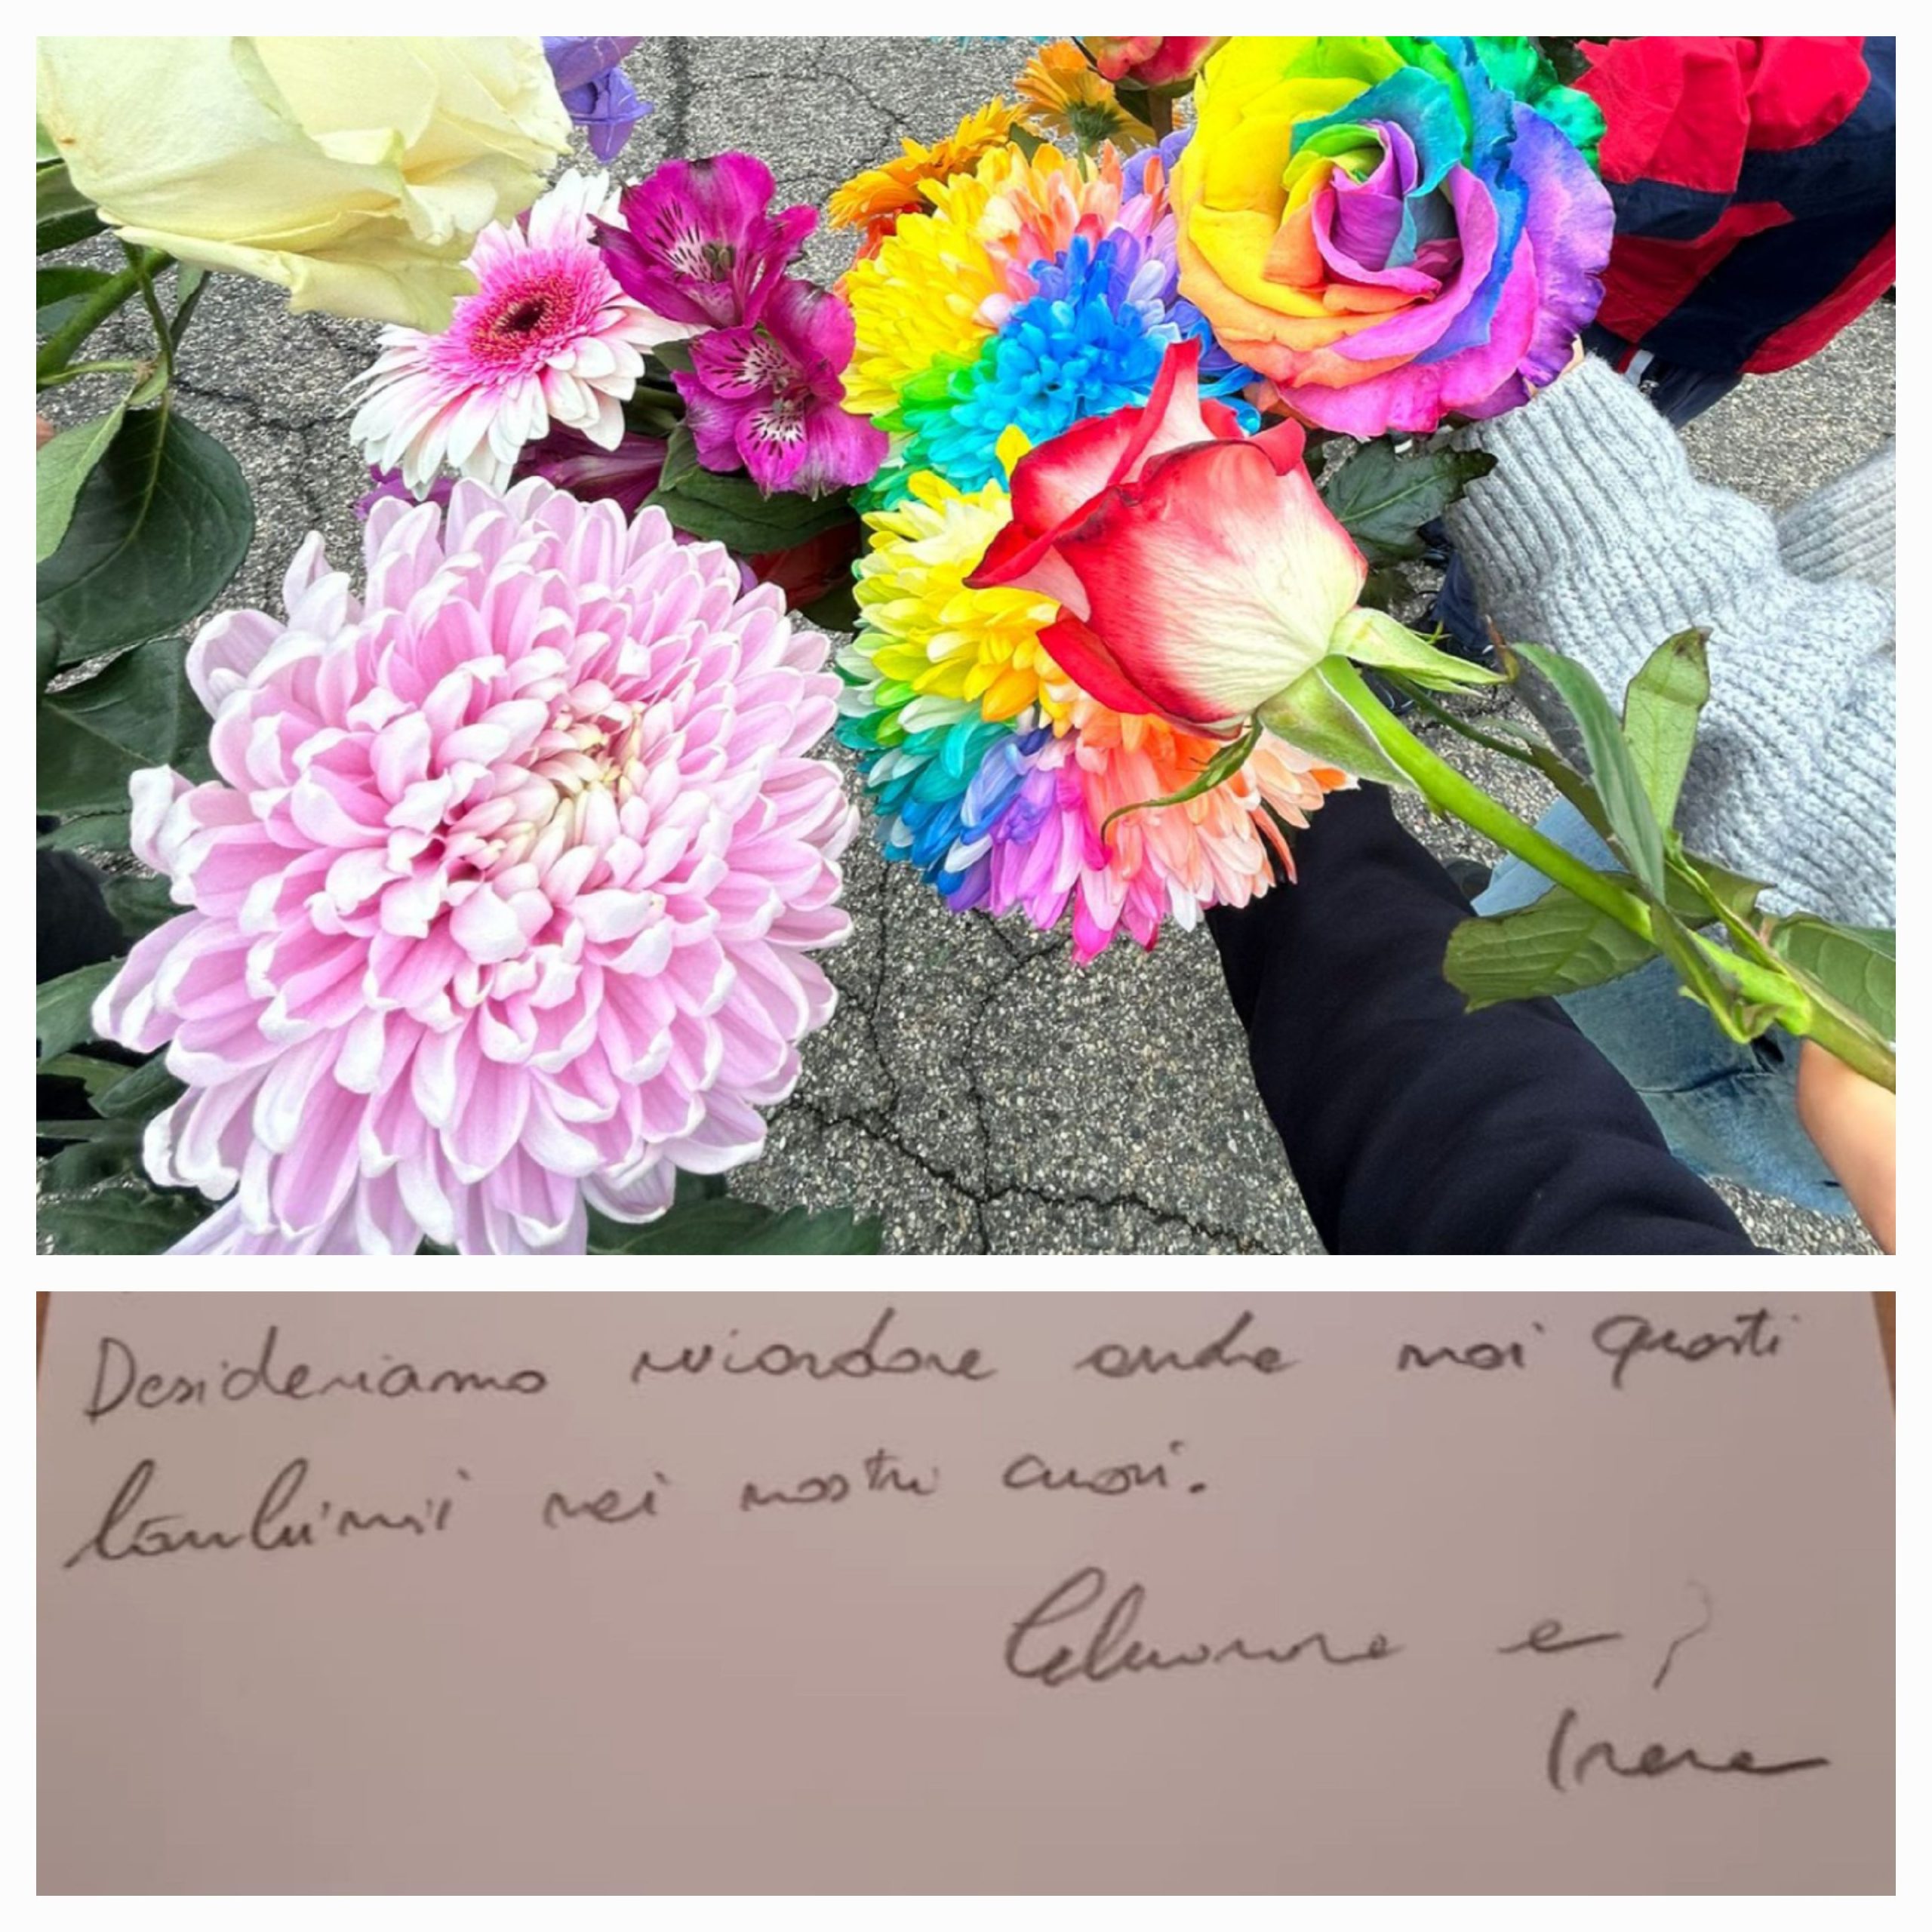 Desideriamo ricordare anche noi questi
bambini nei nostri cuori.
Eleonora e
Irene